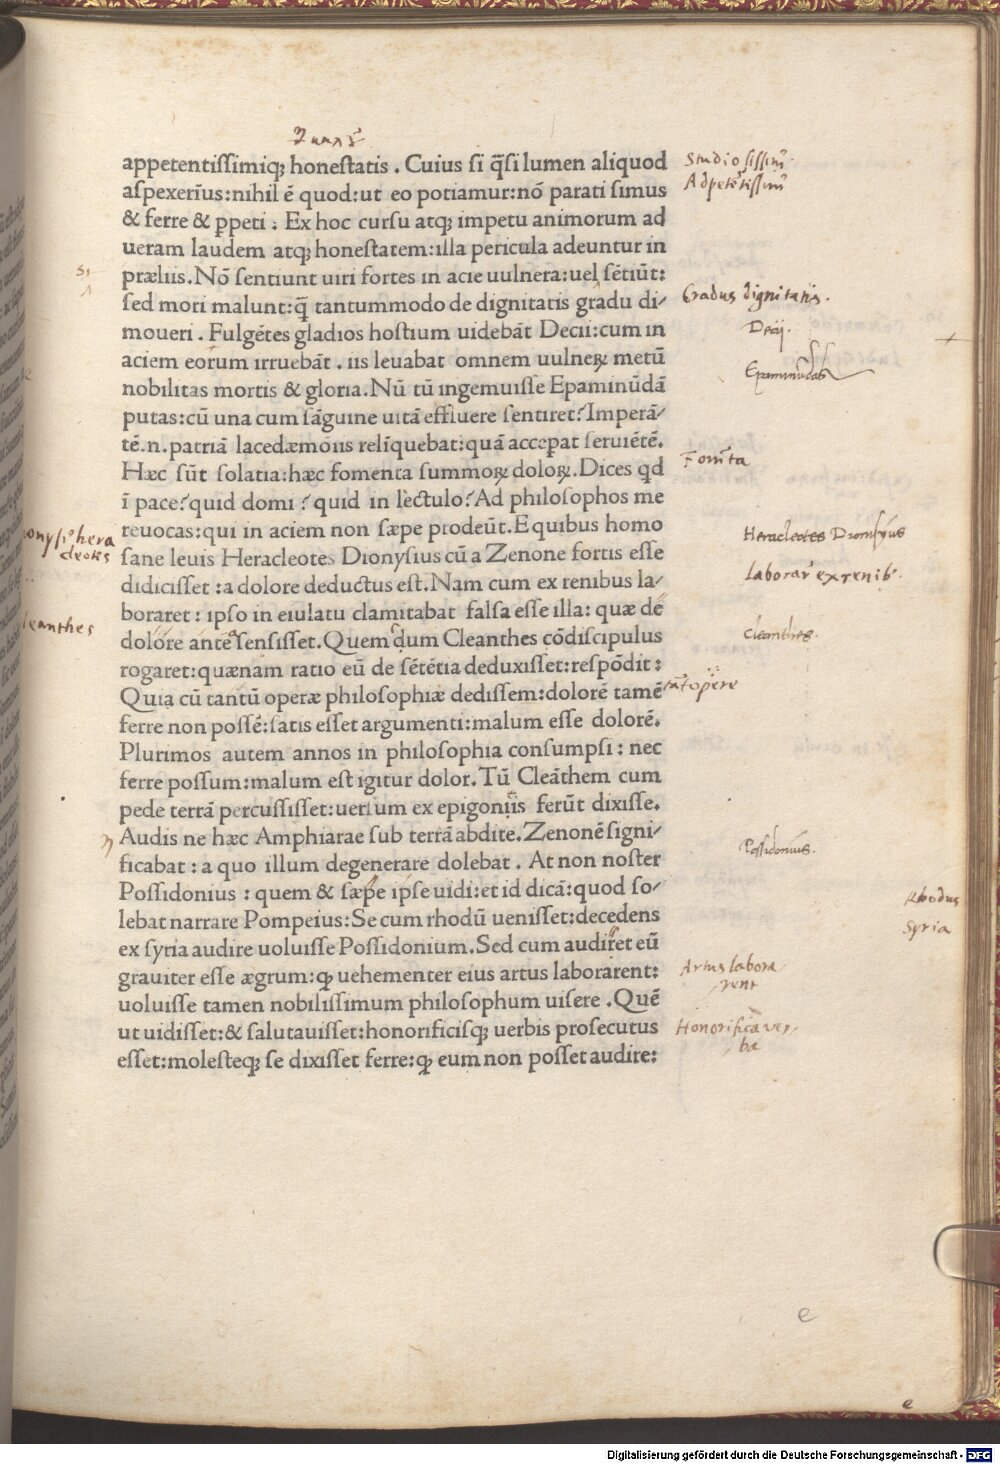 appetentissimiq; honestatis . Cuius si q̃si lumen aliquod
aspexerĩus: nihil ẽ quod: ut eo potiamur: nõ parati simus
& ferre & ꝑpeti : Ex hoc cursu atq; impetu animorum ad
ueram laudem atq; honestatem: illa pericula adeuntur in
præliis. Nõ sentiunt uiri fortes in acie uulnera: uel sẽtiũt:
sed mori malunt: q̃ tantummodo de dignitatis gradu di/
moueri . Fulgẽtes gladios hostium uidebãt Decii: cum in
aciem eorum irruebãt . iis leuabat omnem uulneꝝ metũ
nobilitas mortis & gloria. Nũ tũ ingemuisse Epaminũdã
putas: cũ una cum sãguine uitã effluere sentiret? Imperã/
tẽ .n. patriã lacedæmoniis relĩquebat: quã acceꝑat seruiẽtẽ.
Hæc sũt solatia: hæc fomenta summoꝝ doloꝝ. Dices qd
ĩ pace? quid domi ? quid in lectulo? Ad philosophos me
reuocas: qui in aciem non sæpe prodeũt. E quibus homo
sane leuis Heracleotes Dionysius cũ a Zenone fortis esse
didicisset : a dolore deductus est. Nam cum ex renibus la/
boraret : ipso in eiulatu clamitabat falsa esse illa: quæ de
dolore ante sensisset. Quem dum Cleanthes cõdiscipulus
rogaret: quænam ratio eũ de sẽtẽtia deduxisset: respõdit :
Quia cũ tantũ operæ philosophiæ dedissem: dolorẽ tamẽ
ferre non possẽ: satis esset argumenti: malum esse dolorẽ.
Plurimos autem annos in philosophia consumpsi : nec
ferre possum: malum est igitur dolor. Tũ Cleãthem cum
pede terrã percussisset: uersum ex epigoniis ferũt dixisse.
Audis ne hæc Amphiarae sub terrã abdite. Zenonẽ signi/
ficabat : a quo illum degenerare dolebat . At non noster
Possidonius : quem & sæpe ipse uidi: et id dicã: quod so/
lebat narrare Pompeius: Se cum rhodũ uenisset: decedens
ex syria audire uoluisse Possidonium. Sed cum audiret eũ
grauiter esse ægrum: ꝙ uehementer eius artus laborarent:
uoluisse tamen nobilissimum philosophum uisere . Quẽ
ut uidisset: & salutauisset: honorificisq; uerbis prosecutus
esset: molesteq; se dixisset ferre: ꝙ eum non posset audire:
Gradus dignitatis.
Decij.
Epaminũdas
Heracleotes Dionisius
Cleanthes.
Possidonius.
Rhodus
Syria
Artus labora
rent
Honorifica ver-
ba
e
e
Digitalisierung gefördert durch die Deutsche Forschungsgemeinschaft - DFG